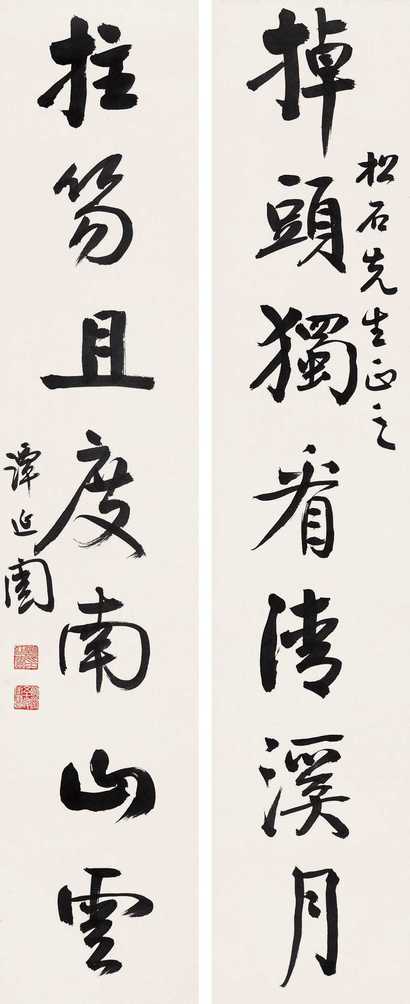 松石先生正之
掉頭獨看清溪月
拄笏且度南山雲
譚延闓